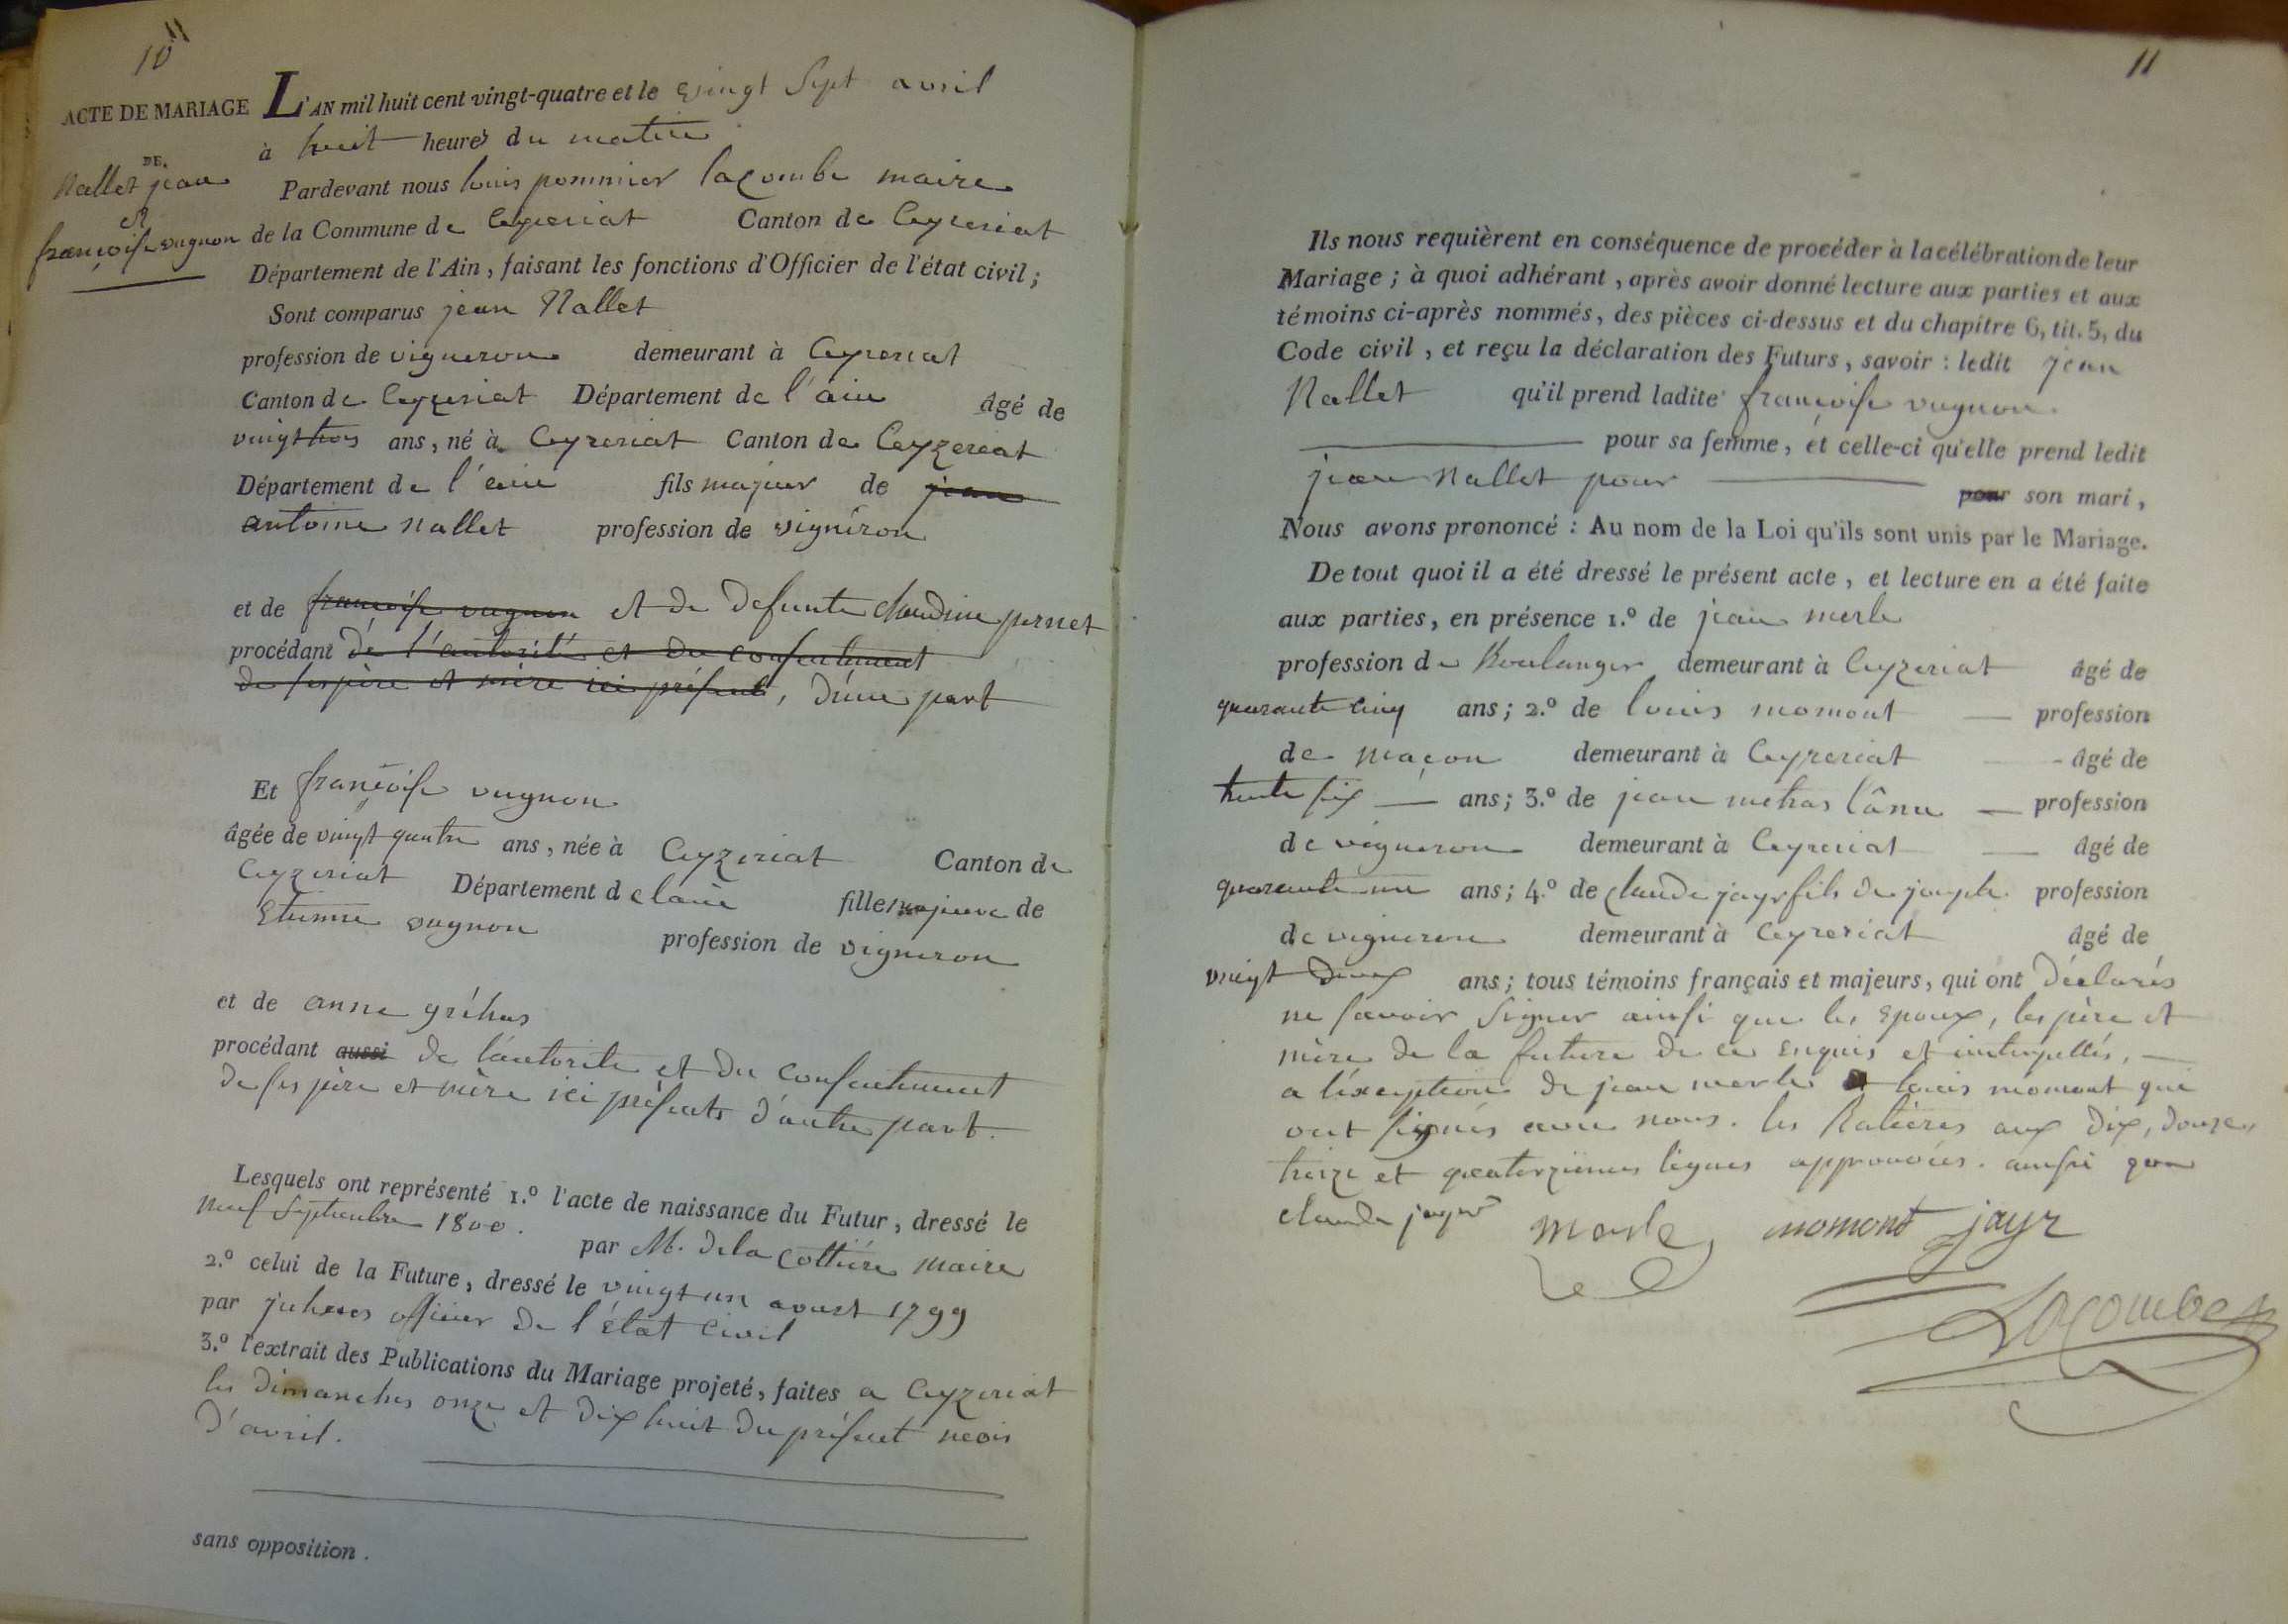 10
11
ACTE DE MARIAGE
DE
Nallet jean
et
françoise vugnon
L'AN mil huit cent vingt-quatre et le vingt sept avril
à huit heures du matin
Pardevant nous louis pommier lacombe maire
de la Commune de Ceyzeriat Canton de Ceyzeriat
Département de l'Ain, faisant les fonctions d'Officier de l'état civil;
Sont comparus jean Nallet
profession de vigneron demeurant à Ceyzeriat
Canton de Ceyzeriat Département de l'ain âgé de
vingt trois ans, né à Ceyzeriat Canton de Ceyzereat
Département de l'ain fils majeur de jean
antoine nallet profession de vigneron
et de françoise vugnon et de defunte claudine pernet
procédant de l'autorité et du consentement
de ses père et mère ici présent, d'une part
Et françoise vugnon
âgée de vingt quatre ans, née à Ceyzeriat Canton de
Ceyzeriat Département de lain fille majeure de
Etienne vugnon profession de vigneron
et de anne gréhas
procédant aussi de l'autorite et du consentement
de ses père et mère ici présents d'autre part.
Lesquels ont représenté 1.º l'acte de naissance du Futur, dressé le
neuf Septembre 1800. par M. dela cottière maire
2.º celui de la Future, dressé le vingt un aoust 1799
par officier de l'état civil
3.º l'extrait des Publications du Mariage projeté, faites a Ceyzeriat
les dimanches onze et dix huit du présent mois
d'avril.
sans opposition.
11
Ils nous requièrent en conséquence de procéder à la célébration de leur
Mariage; à quoi adhérant, après avoir donné lecture aux parties et aux
témoins ci-après nommés, des pièces ci-dessus et du chapitre 6, tit. 5, du
Code civil, et reçu la déclaration des Futurs, savoir: ledit jean
Nallet qu'il prend ladite françoise vugnon
pour sa femme, et celle-ci qu'elle prend ledit
jean Nallet pour pour son mari,
Nous avons prononcé: Au nom de la Loi qu'ils sont unis par le Mariage.
De tout quoi il a été dressé le présent acte, et lecture en a été faite
aux parties, en présence 1.º de jean merle
profession de Boulanger demeurant à Ceyzeriat âgé de
quarante cinq ans; 2.º de louis momont profession
de maçon demeurant à Ceyzeriat âgé de
trente six ans; 3.º de jean l'âne profession
de vigneron demeurant à Ceyzeriat âgé de
quarante un ans; 4.º de claude jayr fils de joseph profession
de vigneron demeurant à Ceyzeriat âgé de
vingt deux ans; tous témoins français et majeurs, qui ont déclarés
ne savoir signer ainsi que les Epoux, les père et
mère de la future de ce enquis et interpellés,
a l'éxception de jean merle et louis momont qui
ont signés avec nous. les Ratières aux dix, douze,
treize et quatorzièmes lignes approuvées. ainsi que
claude jayr
merle momont jayr
Lacombe